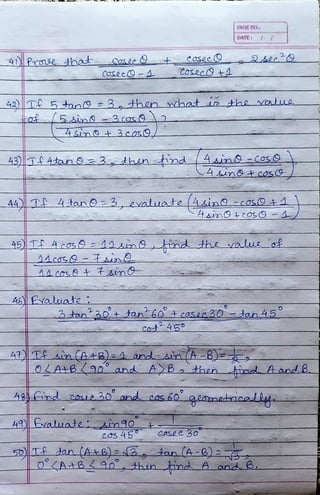 PAGE NO.:
DATE: / /
41) Prove that cosec θ / cosec θ - 1 + cosec θ / cosec θ + 1 = 2 sec² θ
42) If 5 tan θ = 3, then what is the value
of (5 sin θ - 3 cos θ / 4 sin θ + 3 cos θ)?
43) If 4 tan θ = 3, then find (4 sin θ - cos θ / 4 sin θ + cos θ).
44) If 4 tan θ = 3, evaluate (4 sin θ - cos θ + 1 / 4 sin θ + cos θ - 1)
45) If 4 cos θ = 11 sin θ, find the value of
11 cos θ - 7 sin θ / 11 cos θ + 7 sin θ
46) Evaluate :
3 tan² 30° + tan² 60° + cosec 30° - tan 45° / cot² 45°
47) If sin (A+B) = 1 and sin (A-B) = 1/2,
0 ≤ A+B ≤ 90° and A > B, then find A and B.
48) Find cosec 30° and cos 60° geometrically.
49) Evaluate: sin 90° / cos 45° + 1 / cosec 30°
50) If tan (A+B) = √3, tan (A-B) = 1/√3,
0° < A+B ≤ 90°, then find A and B.